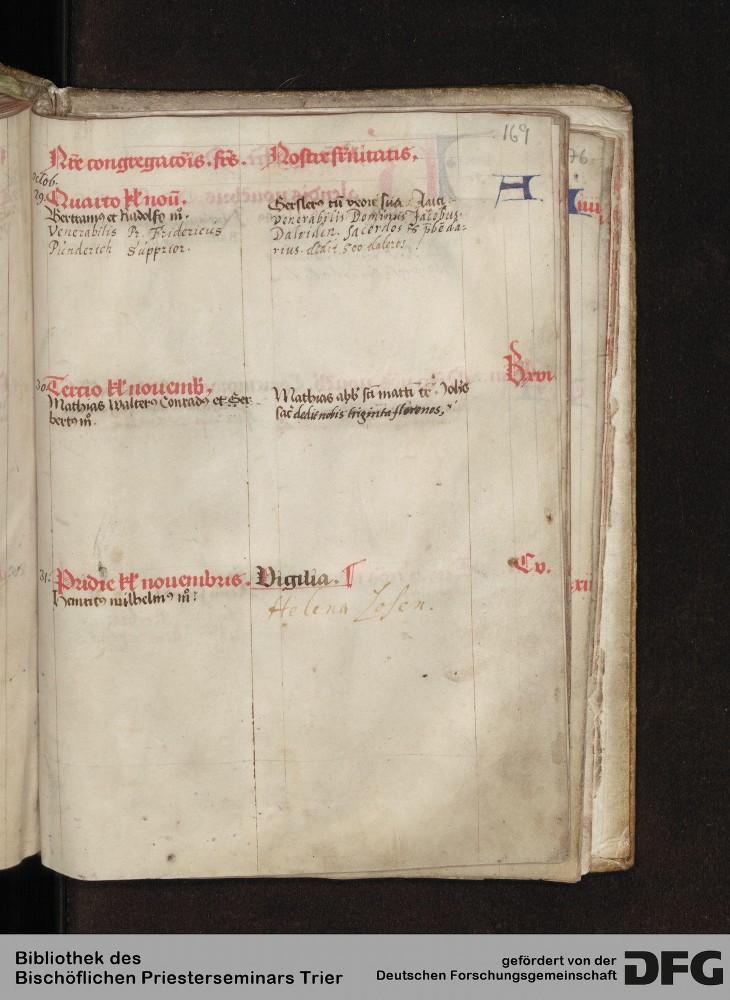 169
Nr̄e congregacōis. fr̄s. Nostre fr̄nitatis.
Octob.
29. Quarto kl' nou̅. A
Bertram9 et Rudolf9 m̊.
Venerabilis Pr. Fridericus
Pünderich Supprior.
cū uxore sua
Venerabilis Dominus Jacobus
Dalriden. Sacerdos
rius. dedit 500 daleros.
30. Tercio kl' nouemb. B xvi
Mathias Walter9 Conrad9 et Ger-
bert9 m̊.
Mathias abb' sc̄i
dedit nobis triginta florenos,
31. Pridie kl' nouembris. Vigilia. C v.
Henric9 wilhelm9 m̊.
Helena
76.
iiii
xii
Bibliothek des
Bischöflichen Priesterseminars Trier
gefördert von der
Deutschen Forschungsgemeinschaft
DFG